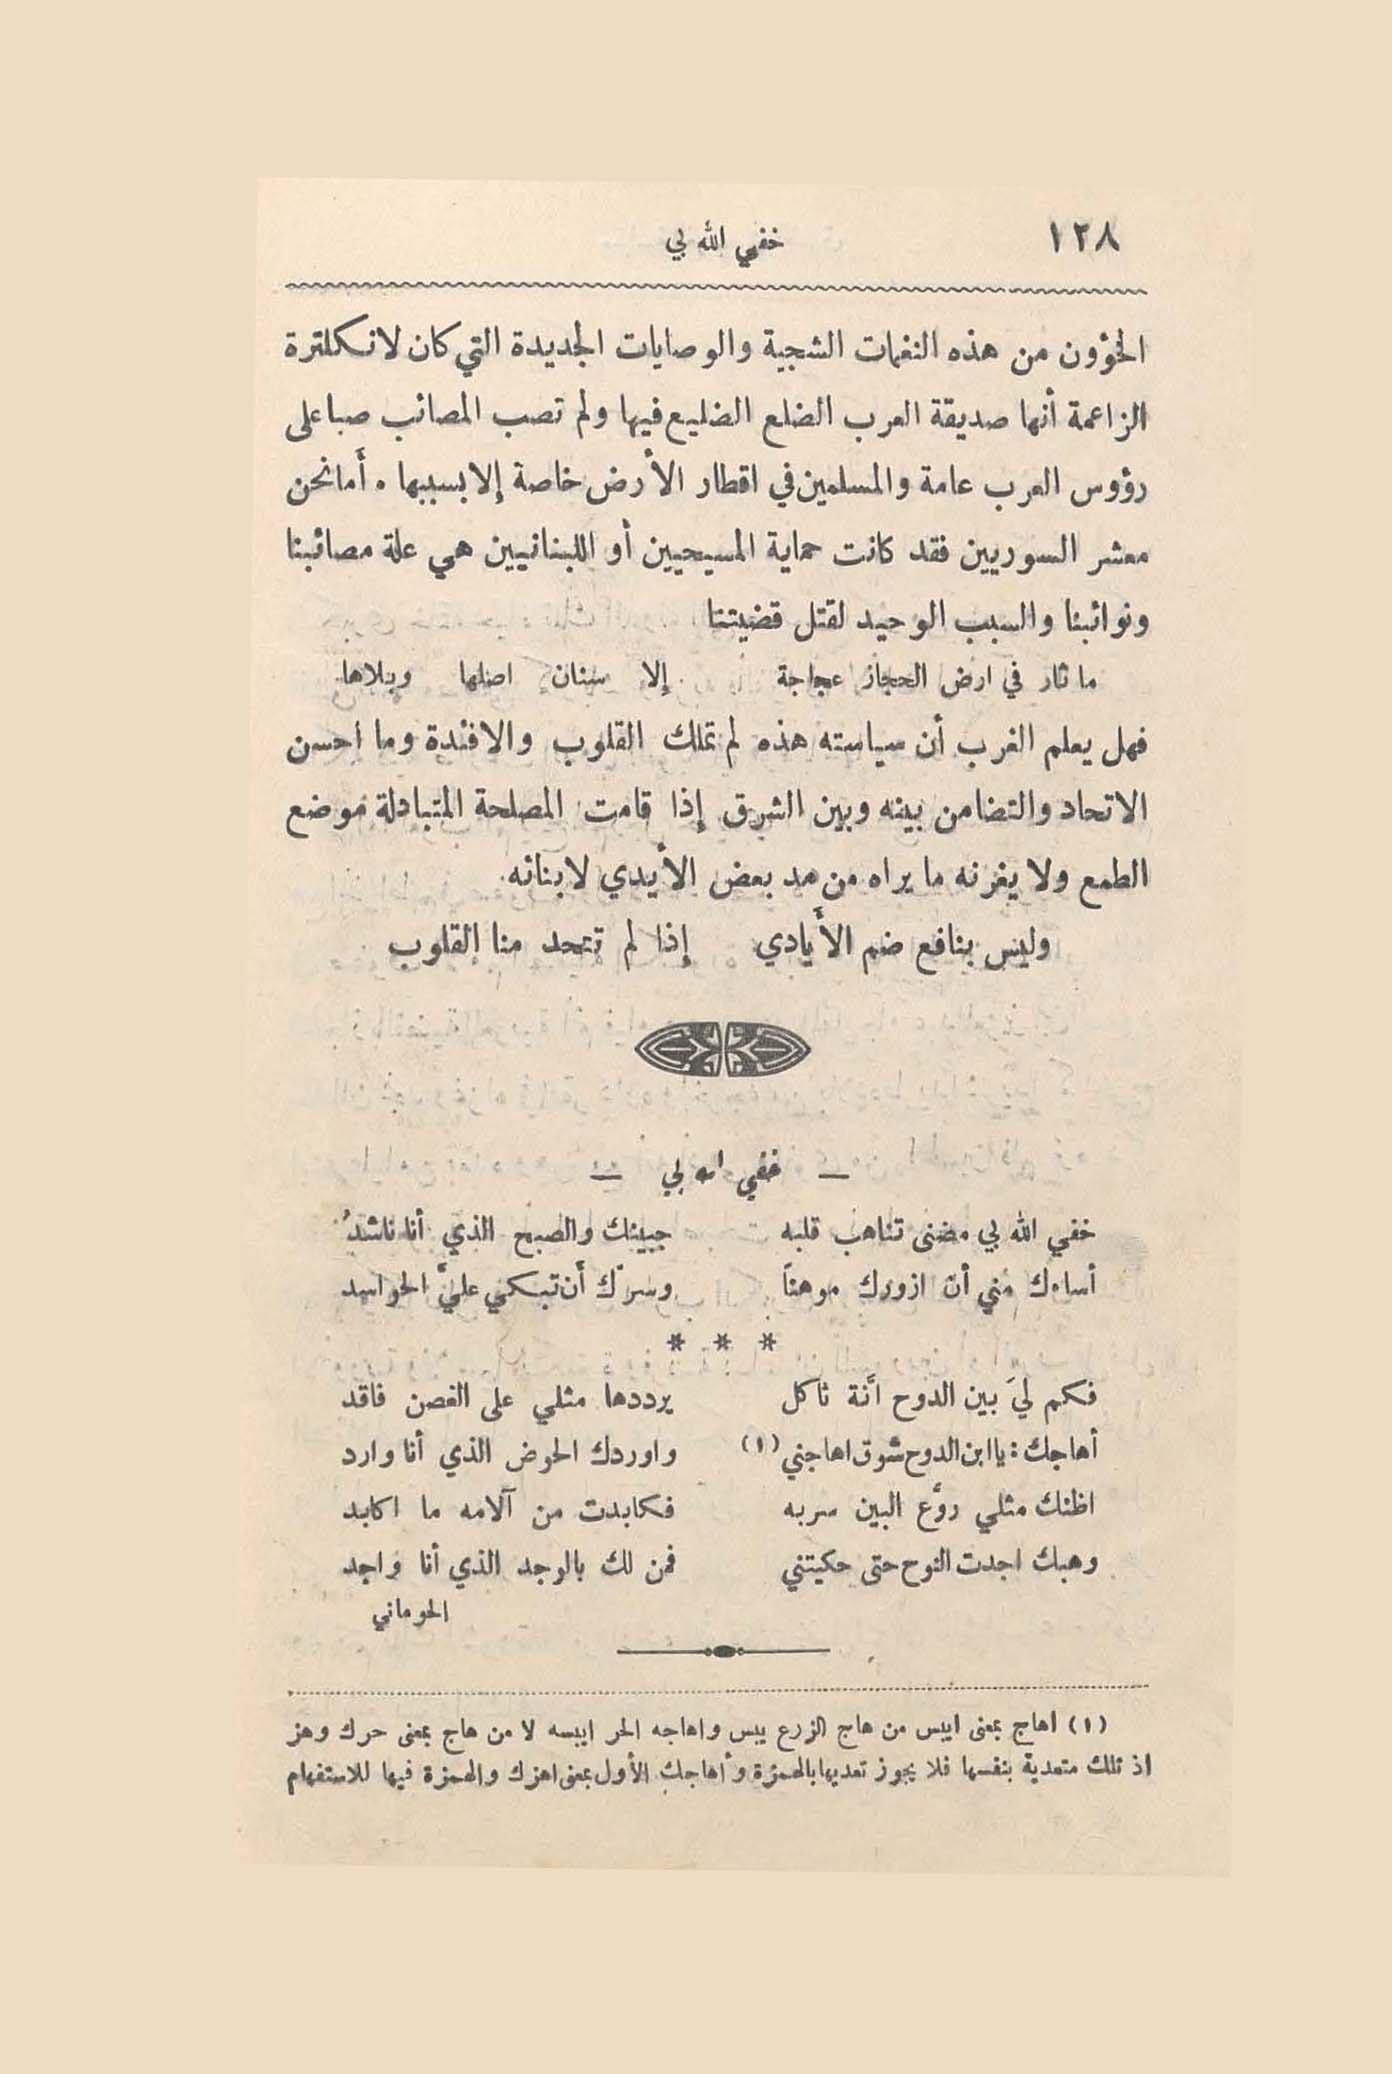 ١٢٨
خفي الله بي
الخؤون من هذه النغمات الشجية والوصايات الجديدة التي كان لانكلترة
الزاعمة أنها صديقة العرب الضلع الضليع فيها ولم تصب المصائب صبا على
رؤوس العرب عامة والمسلمين في اقطار الأرض خاصة إلا بسببها ٠ أما نحن
معشر السوريين فقد كانت حماية المسيحيين أو اللبنانيين هي علة مصائبنا
ونوائبنا والسبب الوحيد لقتل قضيتنا
ما ثار في ارض الحجاز عجاجة إلا سنان اصلها وبلاها
فهل يعلم الغرب أن سياسته هذه لم تملك القلوب والافئدة وما احسن
الاتحاد والتضامن بينه وبين الشرق إذا قامت المصلحة المتبادلة موضع
الطمع ولا يغرنه ما يراه من مد بعض الأيدي لابنائه
وليس بنافع ضم الأَيادي إذا لم تتحد منا القلوب
— خفي الله بي —
خفي الله بي مضنى تناهب قلبه جبينك والصبح الذي أنا ناشدُ
أساءك مني أن ازورك موهناً وسرّك أَن تبكي عليَّ الحواسد
* * *
فكم ليَ بين الدوح أَنة ثاكل يرددها مثلي على الغصن فاقد
أهاجك : يا ابن الدوح شوق اهاجني (١) واوردك الحوض الذي أنا وارد
اظنك مثلي روَّع البين سربه فكابدت من آلامه ما اكابد
وهبك اجدت النوح حتى حكيتني فمن لك بالوجد الذي أنا واجد
الحوماني
(١) اهاج بمعنى ايبس من هاج الزرع يبس واهاجه الحر ايبسه لا من هاج بمعنى حرك وهز
اذ تلك متعدية بنفسها فلا يجوز تعديها بالهمزة وأهاجك الأول بمعنى اهزك والهمزة فيها للاستفهام